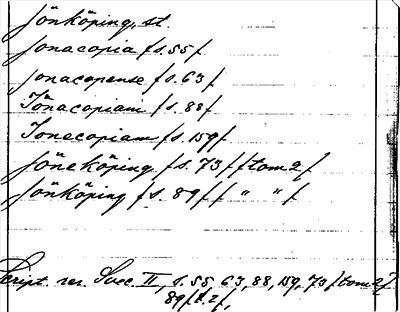 Jönköping, st.
Jonacopia /s. 55/.
jonacopense /s. 63/
Jonacopiam /s. 88/
Jonecopiam /s. 159/
Jöneköping /s. 73/ /tom 2/
Jönköping /s. 89/ / " " /
Script. rer. Svec. II, s. 55, 63, 88, 159, 73 /tom 2/
89/t. 2/,